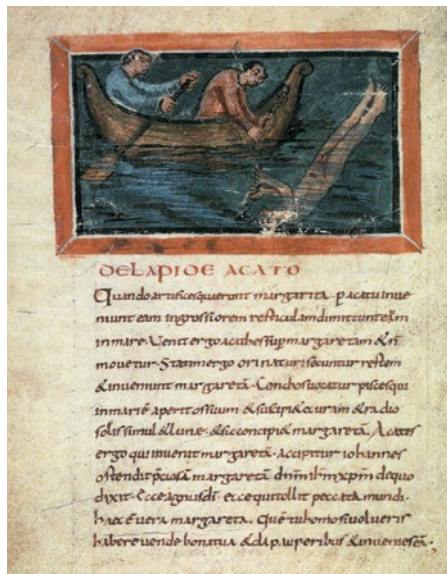 DE LAPIDE ACATO
Quando artifices querunt margarita. p acatu inue
niunt eam ingrossiorem resticulam dimittunt exm
in mare. Uenit ergo acathes sup margaretam & n
mouetur. Statim ergo orinatur secuntur restem
& inueniunt margaretā. Conchos uocatur pisces qui
in mari ē aperit os suum & suscipi& curam & radio
solis simul & lune. & sic concipi& margaretā. Acates
ergo qui inuenit margaretā. accipitur iohannes
ostendit p̄ciosā margaretā dnm ihm xpm de quo
dixit. Ecce agnus di. ecce qui tollit peccata mundi.
haec ē uera margareta. Quē tu homo si uolueris
habere uende bona tua & da pauperibus & inuenies eā.